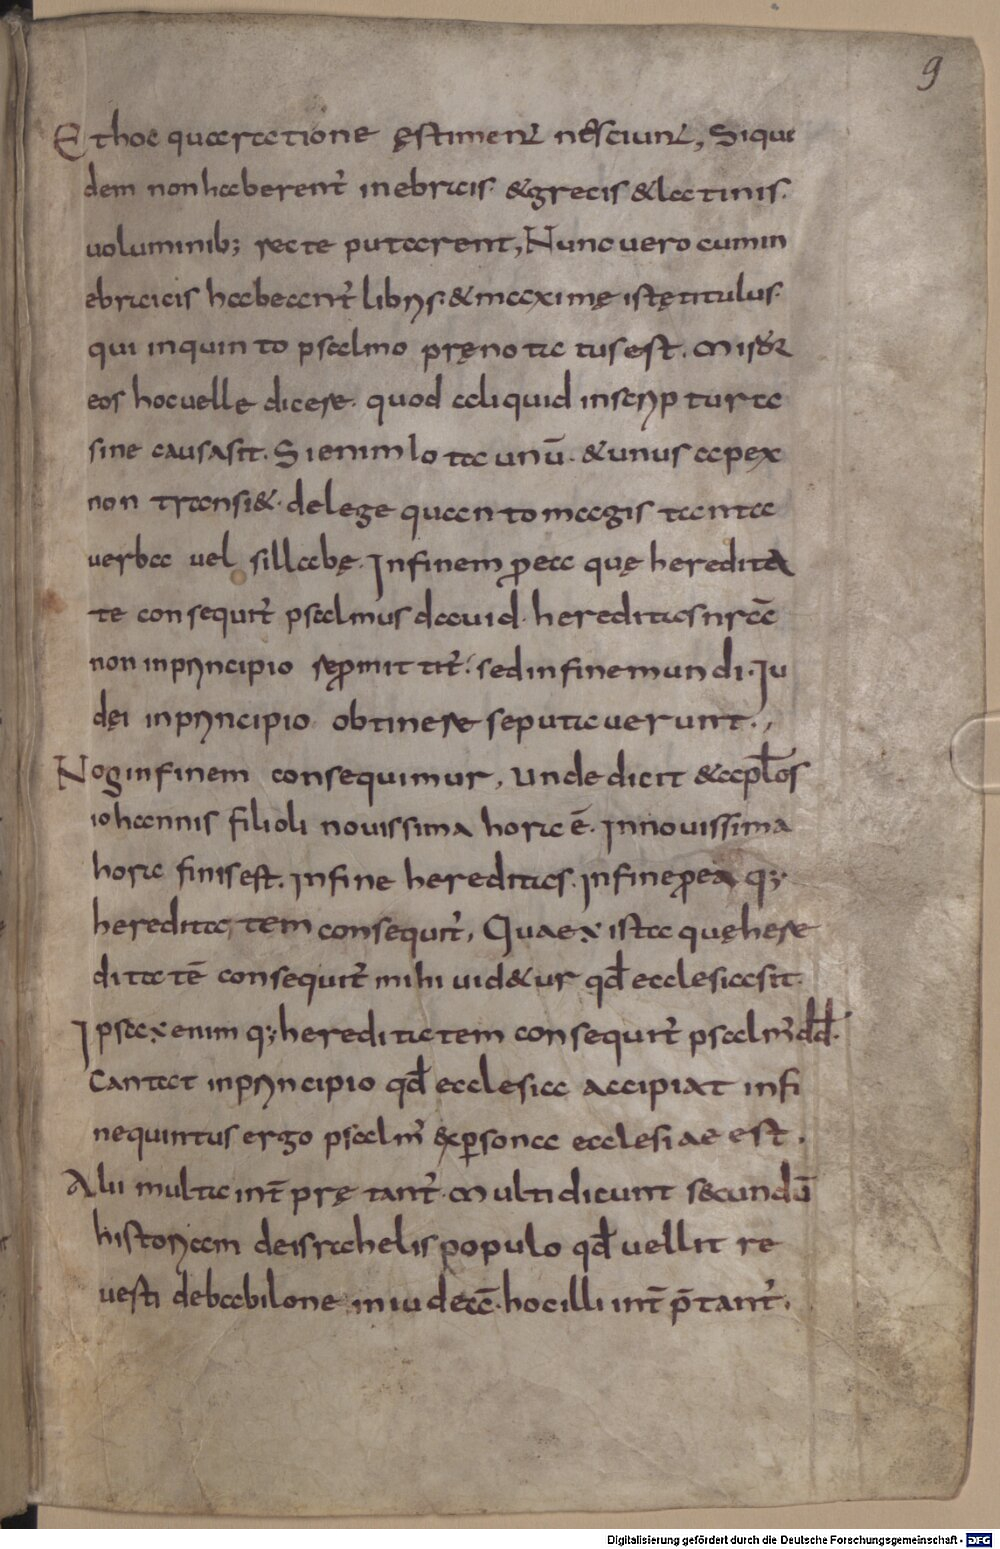 9
Et hoc qua ratione ęstiment̄ nesciunt̄, Sique
dem non haberent̄ in ebricis. & grecis & latinis.
uoluminib; recte putarent, Nunc uero cum in
ebricicis habeant̄ libris. & maximę istę titulus.
qui in quinto psalmo pręnotatus est. Miror
eos hoc uelle dicere. quod aliquid in scriptura
sine causa sit. Si enim iota unū. & unus apex
non transi&. de lege quanto magis tanta
uerba uel sillabę. In finem pro ea quę heredita
te consequit̄ psalmus dauid. hereditas nr̄a
non in principio repromittit̄. sed in fine mundi. Iu
dęi in principio obtinere se putauerunt.,
Nos in finem consequimur, unde dicit & apl̄os
iohannis filioli nouissima hora ē. In nouissima
hora finis est. In fine hereditas. In fine pro ea q;
hereditatem consequit̄, Quae x ista quę here
ditatē consequit̄ mihi uid&ur qd̄ ecclesia sit.
Ipsa x enim q; hereditatem consequit̄ psalm̄ dd̄.
Cantat in principio qd̄ ecclesia accipiat in fi
ne quintus ergo psalm̄ ex persona ecclesiae est.
Alii multa int̄ prętant̄. Multi dicunt secundū
historiam de israhelis populo qd̄ uellit re
uesti de babilone in iudeā. hoc illi int̄ p̄tant̄.
Digitalisierung gefördert durch die Deutsche Forschungsgemeinschaft - DFG